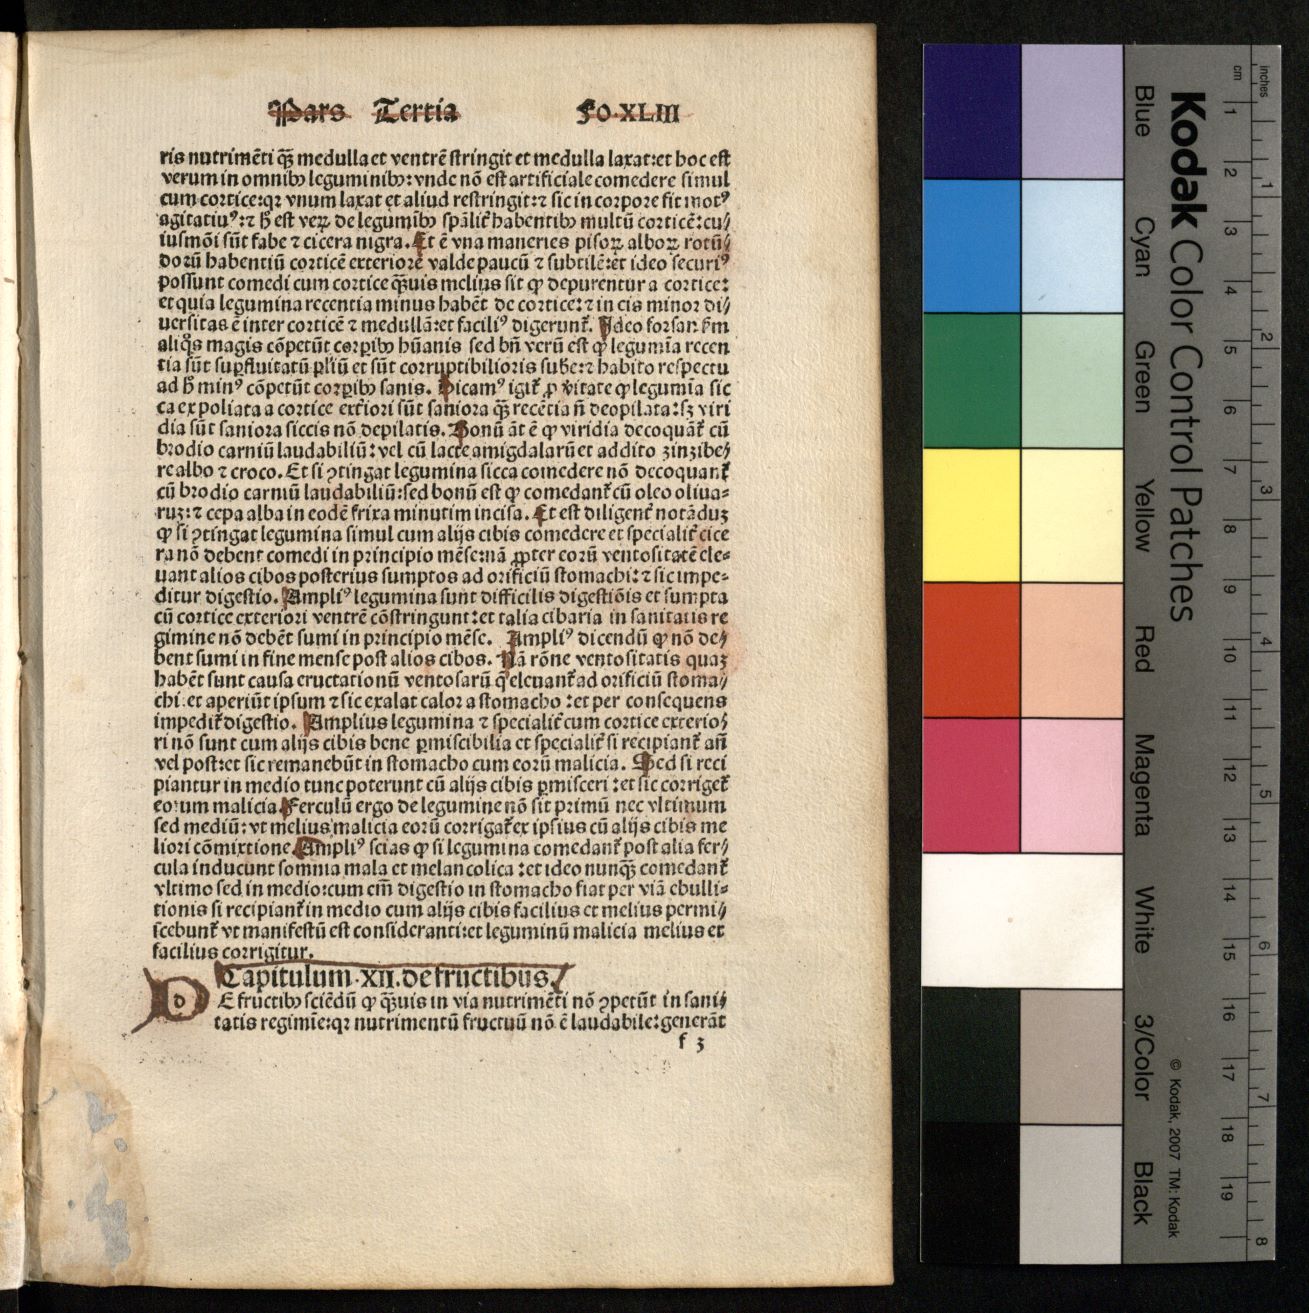 Pars Tertia FO.XLIII
ris nutrimēti q̄ꝫ medulla et ventrē stringit et medulla laxat:et hoc est
verum in omnibꝰ leguminibꝰ: vnde nō est artificiale comedere simul
cum cortice:qꝛ vnum laxat et aliud restringit:⁊ sic in corpore fit motꝰ
agitatiuꝰ:⁊ h̄ est veꝝ de legumībꝰ spālit̄ habentibꝰ multū corticē:cu/
iusmōi sūt fabe ⁊ cicera nigra. Et ē vna maneries pisoꝝ alboꝝ rotū/
doꝝū habentiū corticē exteriorē valde paucū ⁊ subtilē:et ideo securiꝰ
possunt comedi cum cortice q̄ꝫuis melius sit ꝙ depurentur a cortice:
et quia legumina recentia minus habēt de cortice:⁊ in eis minor di/
uersitas ē inter corticē ⁊ medullā:et faciliꝰ digerunt̄. Ideo forsan s̄m
aliq̄s magis cōpetūt corꝑibꝰ hūanis sed bn̄ verū est ꝙ legumīa recen
tia sūt suꝑfluitatū pl̄iū et sūt corruptibilioris sub̄e:⁊ habito respectu
ad h̄ minꝰ cōpetūt corꝑibꝰ sanis. Dicamꝰ igit̄ ꝓ v̄itate ꝙ legumīa sic
ca expoliata a cortice ext̄iori sūt saniora q̄ꝫ recētia n̄ deopilata:sꝫ viri
dia sūt saniora siccis nō depilatis. Bonū āt ē ꝙ viridia decoquāt̄ cū
brodio carniū laudabiliū: vel cū lacte amigdalarū et addito zinzibe/
re albo ⁊ croco. Et si ꝯtingat legumina sicca comedere nō decoquant̄
cū brodio carniū laudabiliū:sed bonū est ꝙ comedant̄ cū oleo oliua=
ruꝫ:⁊ cepa alba in eodē frixa minutim incisa. Et est diligent̄ notāduꝫ
ꝙ si ꝯtingat legumina simul cum alijs cibis comedere et specialit̄ cice
ra nō debent comedi in principio mēse:nā ꝓpter eorū ventositatē ele=
uant alios cibos posterius sumptos ad orificiū stomachi:⁊ sic impe=
ditur digestio. Ampliꝰ legumina sunt difficilis digestiōis et sumpta
cū cortice exteriori ventrē cōstringunt:et talia cibaria in sanitatis re
gimine nō debēt sumi in principio mēse. Ampliꝰ dicendū ꝙ nō de/
bent sumi in fine mense post alios cibos. Nā rōne ventositatis quaꝫ
habēt sunt causa eructationū ventosarū q̄ eleuant̄ ad orificiū stoma/
chi.et aperiūt ipsum ⁊ sic exalat calor a stomacho:et per consequens
impedit̄ digestio. Amplius legumina ⁊ specialit̄ cum cortice exterio/
ri nō sunt cum alijs cibis bene ꝑmiscibilia et specialit̄ si recipiant̄ an̄
vel post:et sic remanebūt in stomacho cum eorū malicia. Sed si reci
piantur in medio tunc poterunt cū alijs cibis ꝑmisceri:et sic corriget̄
eorum malicia. Ferculū ergo de legumine nō sit primū nec vltimum
sed mediū: vt melius malicia eorū corrigat̄ ex ipsius cū alijs cibis me
liori cōmixtione. Ampliꝰ scias ꝙ si legumina comedant̄ post alia fer/
cula inducunt somnia mala et melancolica:et ideo nunq̄ꝫ comedant̄
vltimo sed in medio:cum em̄ digestio in stomacho fiat per viā ebulli=
tionis si recipiant̄ in medio cum alijs cibis facilius et melius permi/
scebunt̄ vt manifestū est consideranti:et leguminū malicia melius et
facilius corrigitur.
Capitulum.XII.de fructibus.
dE fructibꝰ sciēdū ꝙ q̄ꝫuis in via nutrimēti nō ꝯpetūt in sani/
tatis regimīe:qꝛ nutrimentū fructuū nō ē laudabile:generāt
f 3
Kodak Color Control Patches
Blue Cyan Green Yellow Red Magenta White 3/Color Black
© Kodak, 2007 TM: Kodak
cm 1 2 3 4 5 6 7 8 9 10 11 12 13 14 15 16 17 18 19
inches 1 2 3 4 5 6 7 8